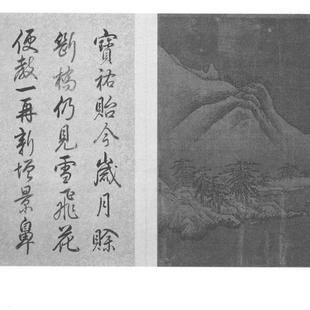 寶祐貽今歲月賒
斷橋仍見雪飛花
便教一再新增景鼻